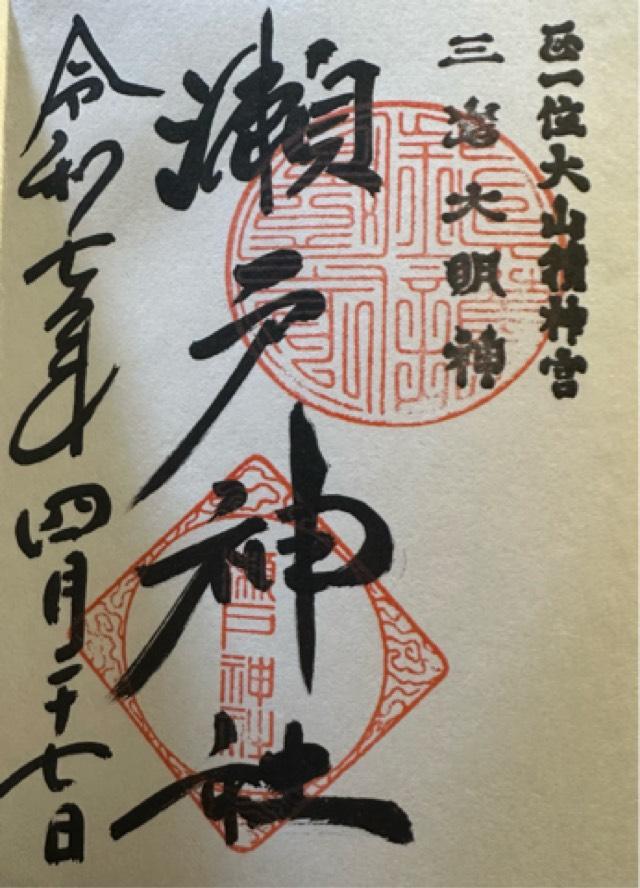 正一位大山積神宮
三嶌大明神
瀬戸神社
令和七年四月二十七日
瀬戸神社